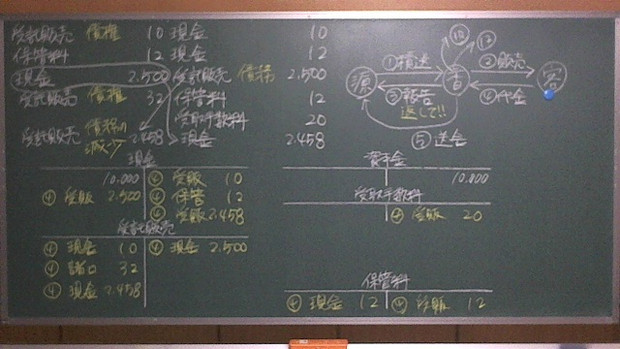 受託販売 債権 10 現金 10
保管料 12 現金 12
現金 2.500 受託販売 債務 2.500
受託販売 債権 32 保管料 12
受取手数料 20
受託販売 債務の減少 2.458 現金 2.458
⑩ ⑫
源 ①積送 香 ②販売 客
③報告 ④代金
返して!!
⑤送金
現金
10.000 ④受販 10
④受販 2.500 ④保管 12
④受販 2.458
受託販売
④現金 10 ④現金 2.500
④諸口 32
④現金 2.458
資本金
10.000
受取手数料
④受販 20
保管料
④現金 12 ④受販 12